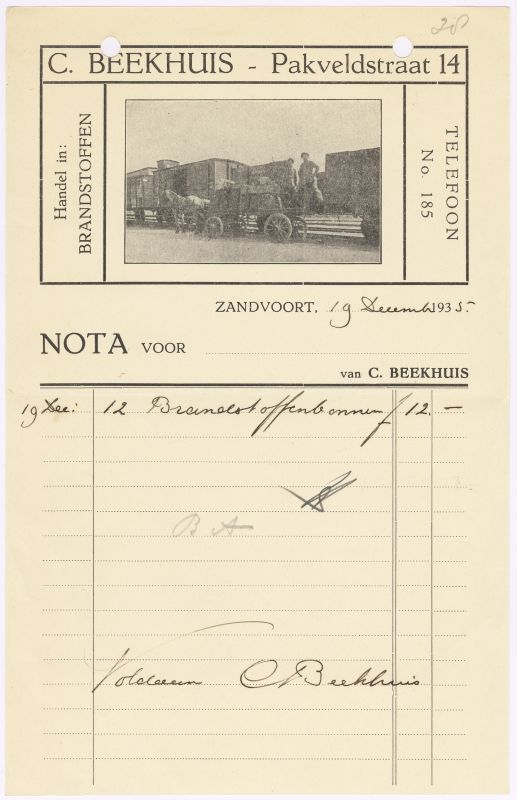 28
C. BEEKHUIS - Pakveldstraat 14
Handel in:
BRANDSTOFFEN
TELEFOON
No. 185
ZANDVOORT, 19 December 1935.
NOTA VOOR
van C. BEEKHUIS
19 Dec: 12 Brandstoffenbonnen f 12.—
B A
Voldaan C Beekhuis